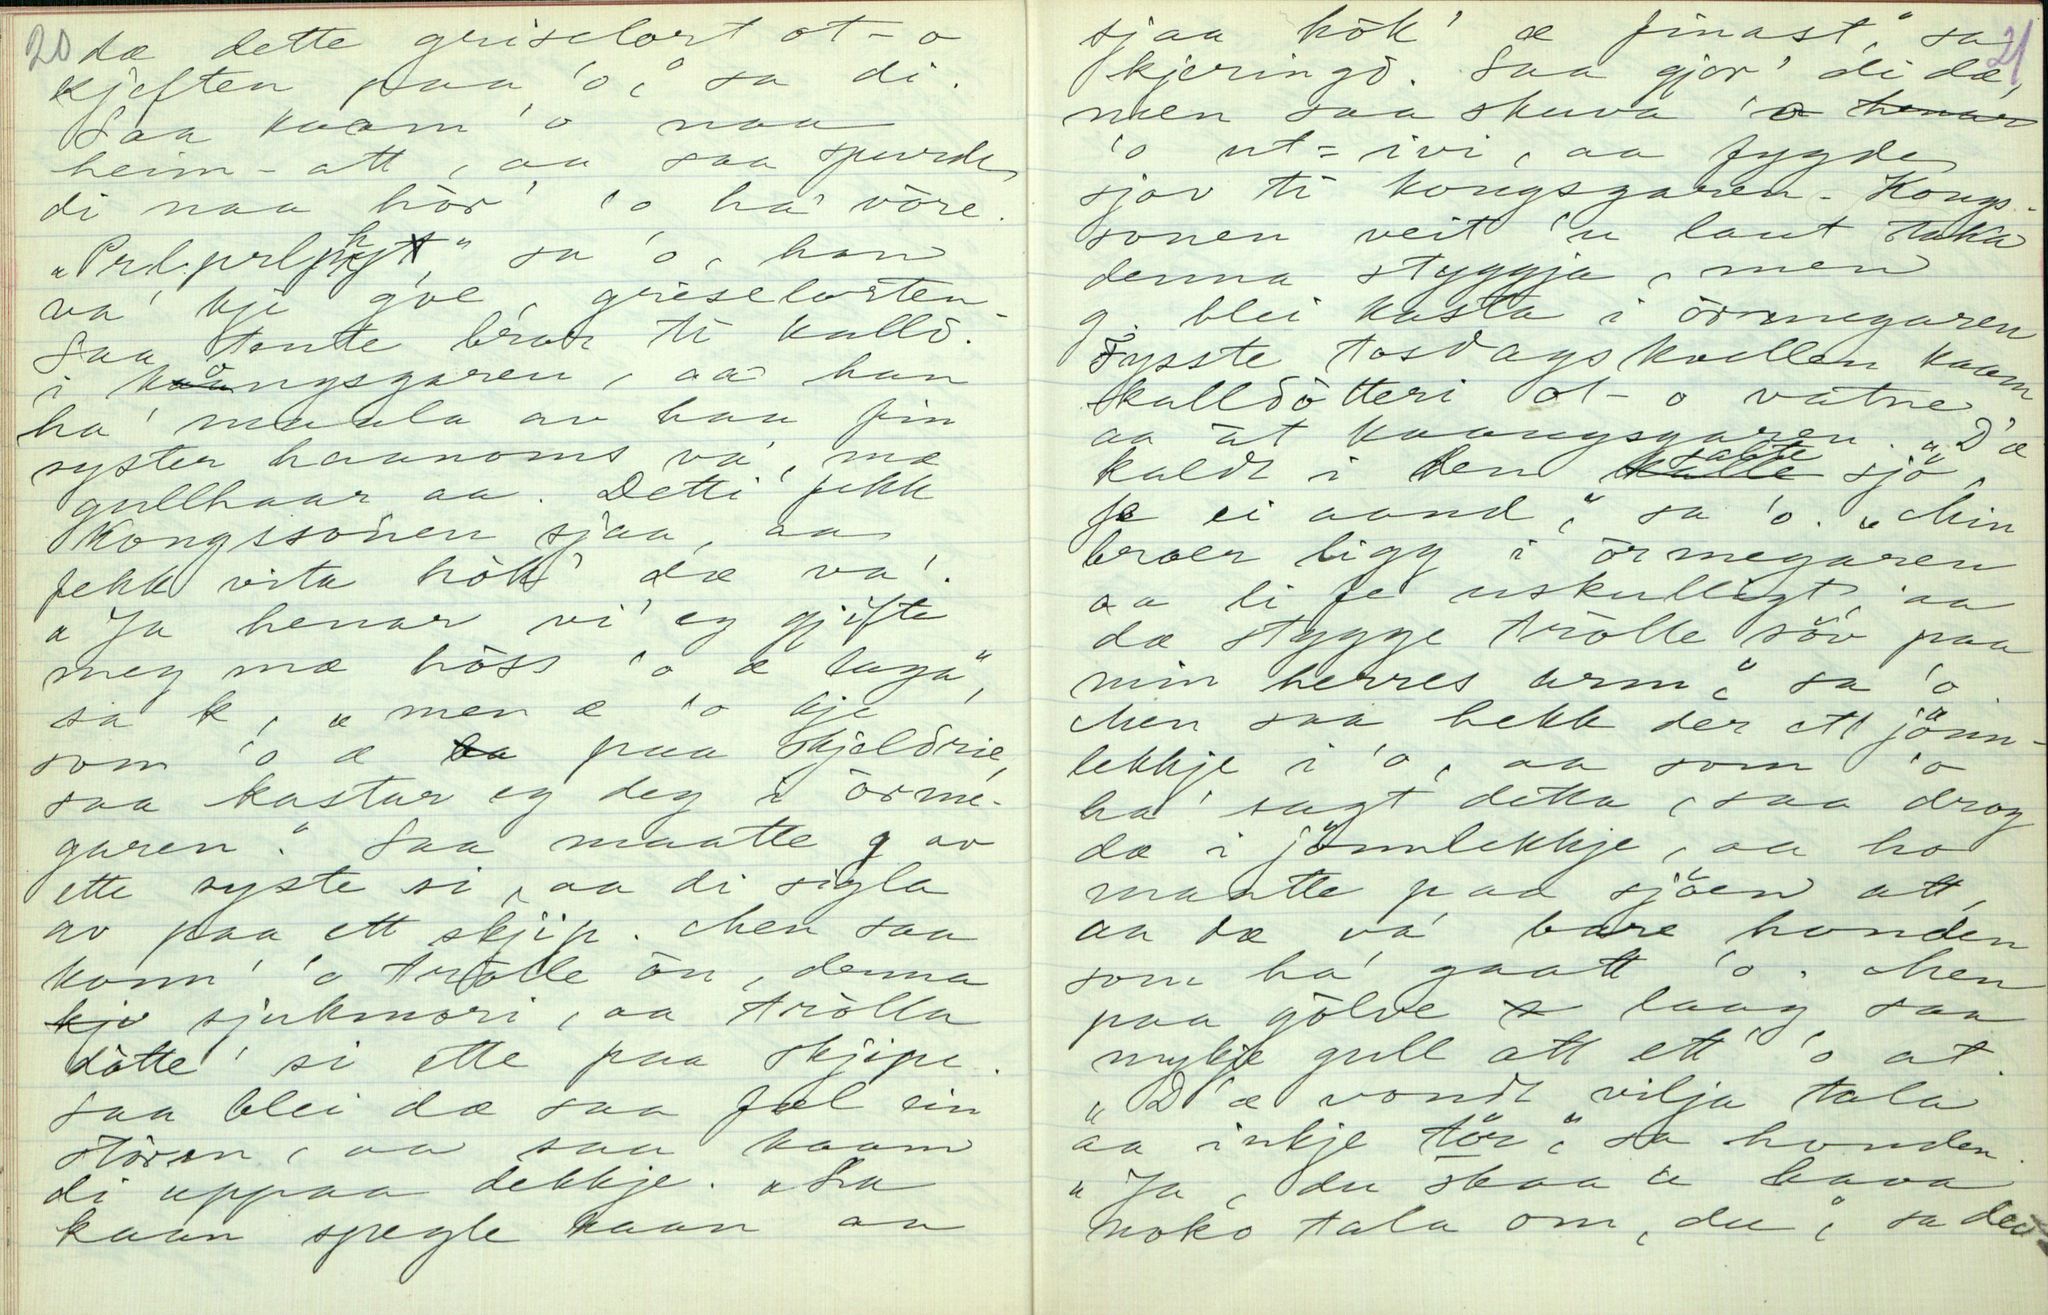 20
dæ dette griselort ot-o
kjeften paa 'o," sa di.
Saa kaam 'o naa
heim-att, aa saa spurde
di naa hör' 'o ha' vöre.
"Prl prl pyh" sa 'o, han
va' kje goe, griselorten.
Saa tente bror ti kallö.
i kongsgaren, aa han
ha' maala av haa fin
syster haanoms va', mæ
gullhaar aa. Detti fekk
Kongssonen sjaa, aa
fekk vita hök' dæ va'.
"Ja henar vi' eg gjifte
meg mæ höss 'o æ laga",
sa k, "men æ 'o kje
som 'o æ paa skjeldrie,
saa kastar eg deg i örme-
garen." Saa maatte g av
ette syste si, aa di sigla
av paa ett skjip. Men saa
konn' 'o trölle ön, denna
sjukmori, aa trölla
dötte' si ette paa skjipe.
Saa blei dæ saa fæl ein
storm, aa saa kaam
di uppaa dekkje. "Laa
kaan spegle kaan aa
21
sjaa hök' æ finast," sa
kjeringö. Saa gjor' di dæ,
men saa skuva 'o henar
'o ut-ivi, aa fygde
sjöv ti kongsgaren. Kongs-
sonen veit 'u laut taka
denna styggja, men
g. blei kasta i örmegaren
Fysste tosdagskvellen kaam
kalldötteri ot-o vatne
aa åt kaangsgaren. "D'æ
kaldt i den salte sjö,
fe ei aand," sa 'o. "Min
broer ligg i örmegaren
aa li fe uskulligt, aa
dæ stygge trölle söv paa
min herres arm," sa 'o.
Men saa hekk der ett jönn-
lekkje i 'o, aa som 'o
ha' sagt detta, saa drog
dæ i jönnlekkje, aa ho
maatte paa sjöen att,
aa dæ va' bare honden
som ha' gaatt 'o. Men
paa gölve laag saa
mykje gull att ett' 'o at.
"D'æ vondt vilja tala
aa inkje tör," sa honden.
"Ja, du skaa 'a hava
noko tala om, du", sa dei